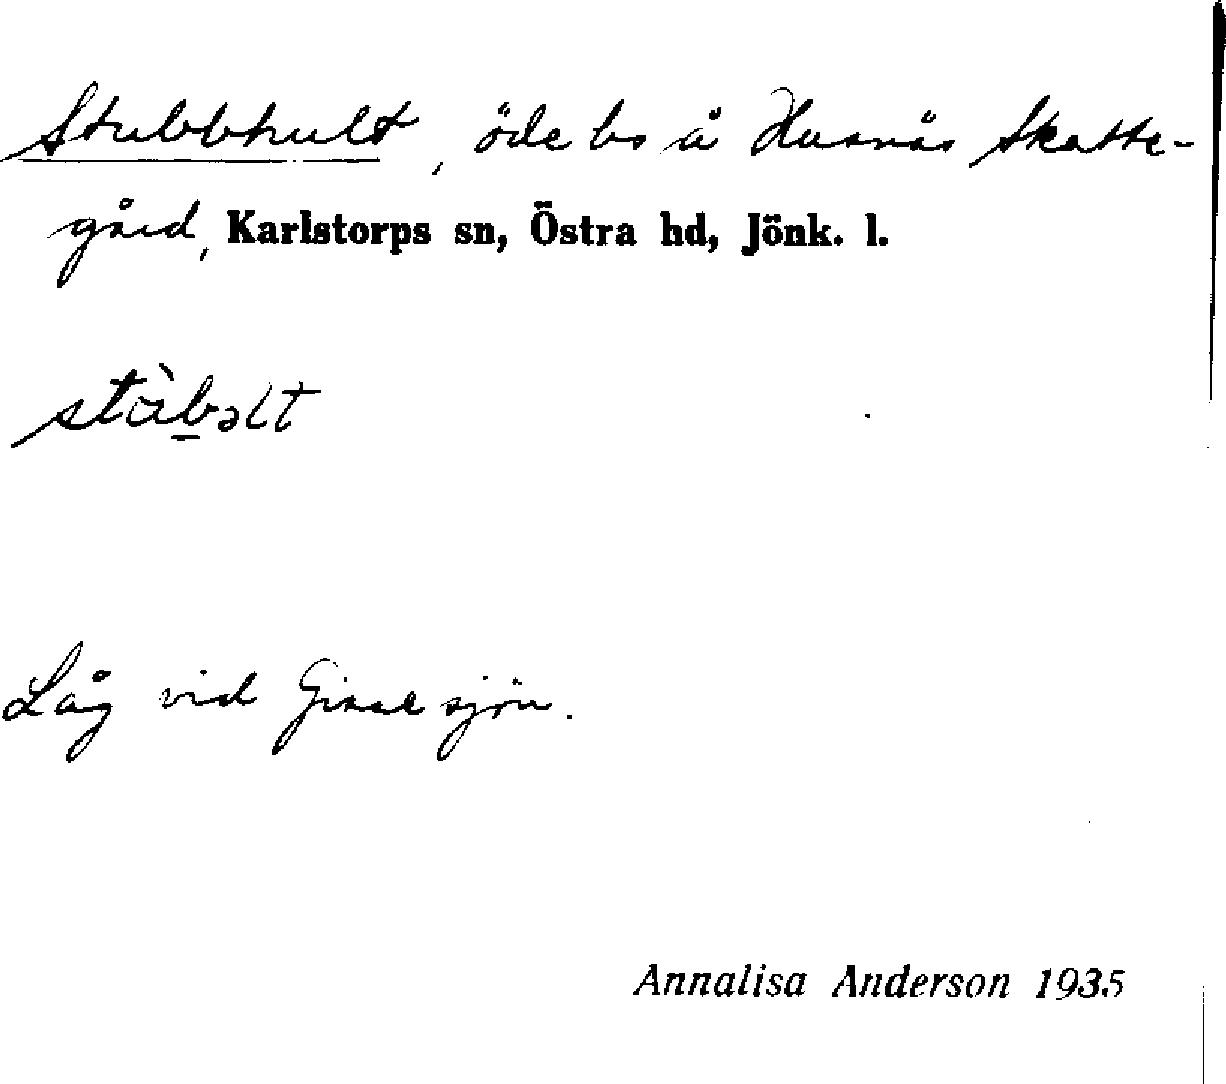 Stubbhult, öde bs å Husnäs Skatte-
gård, Karlstorps sn, Östra hd, Jönk. l.
stàb̲əlt
Låg vid sjön.
Annalisa Anderson 1935